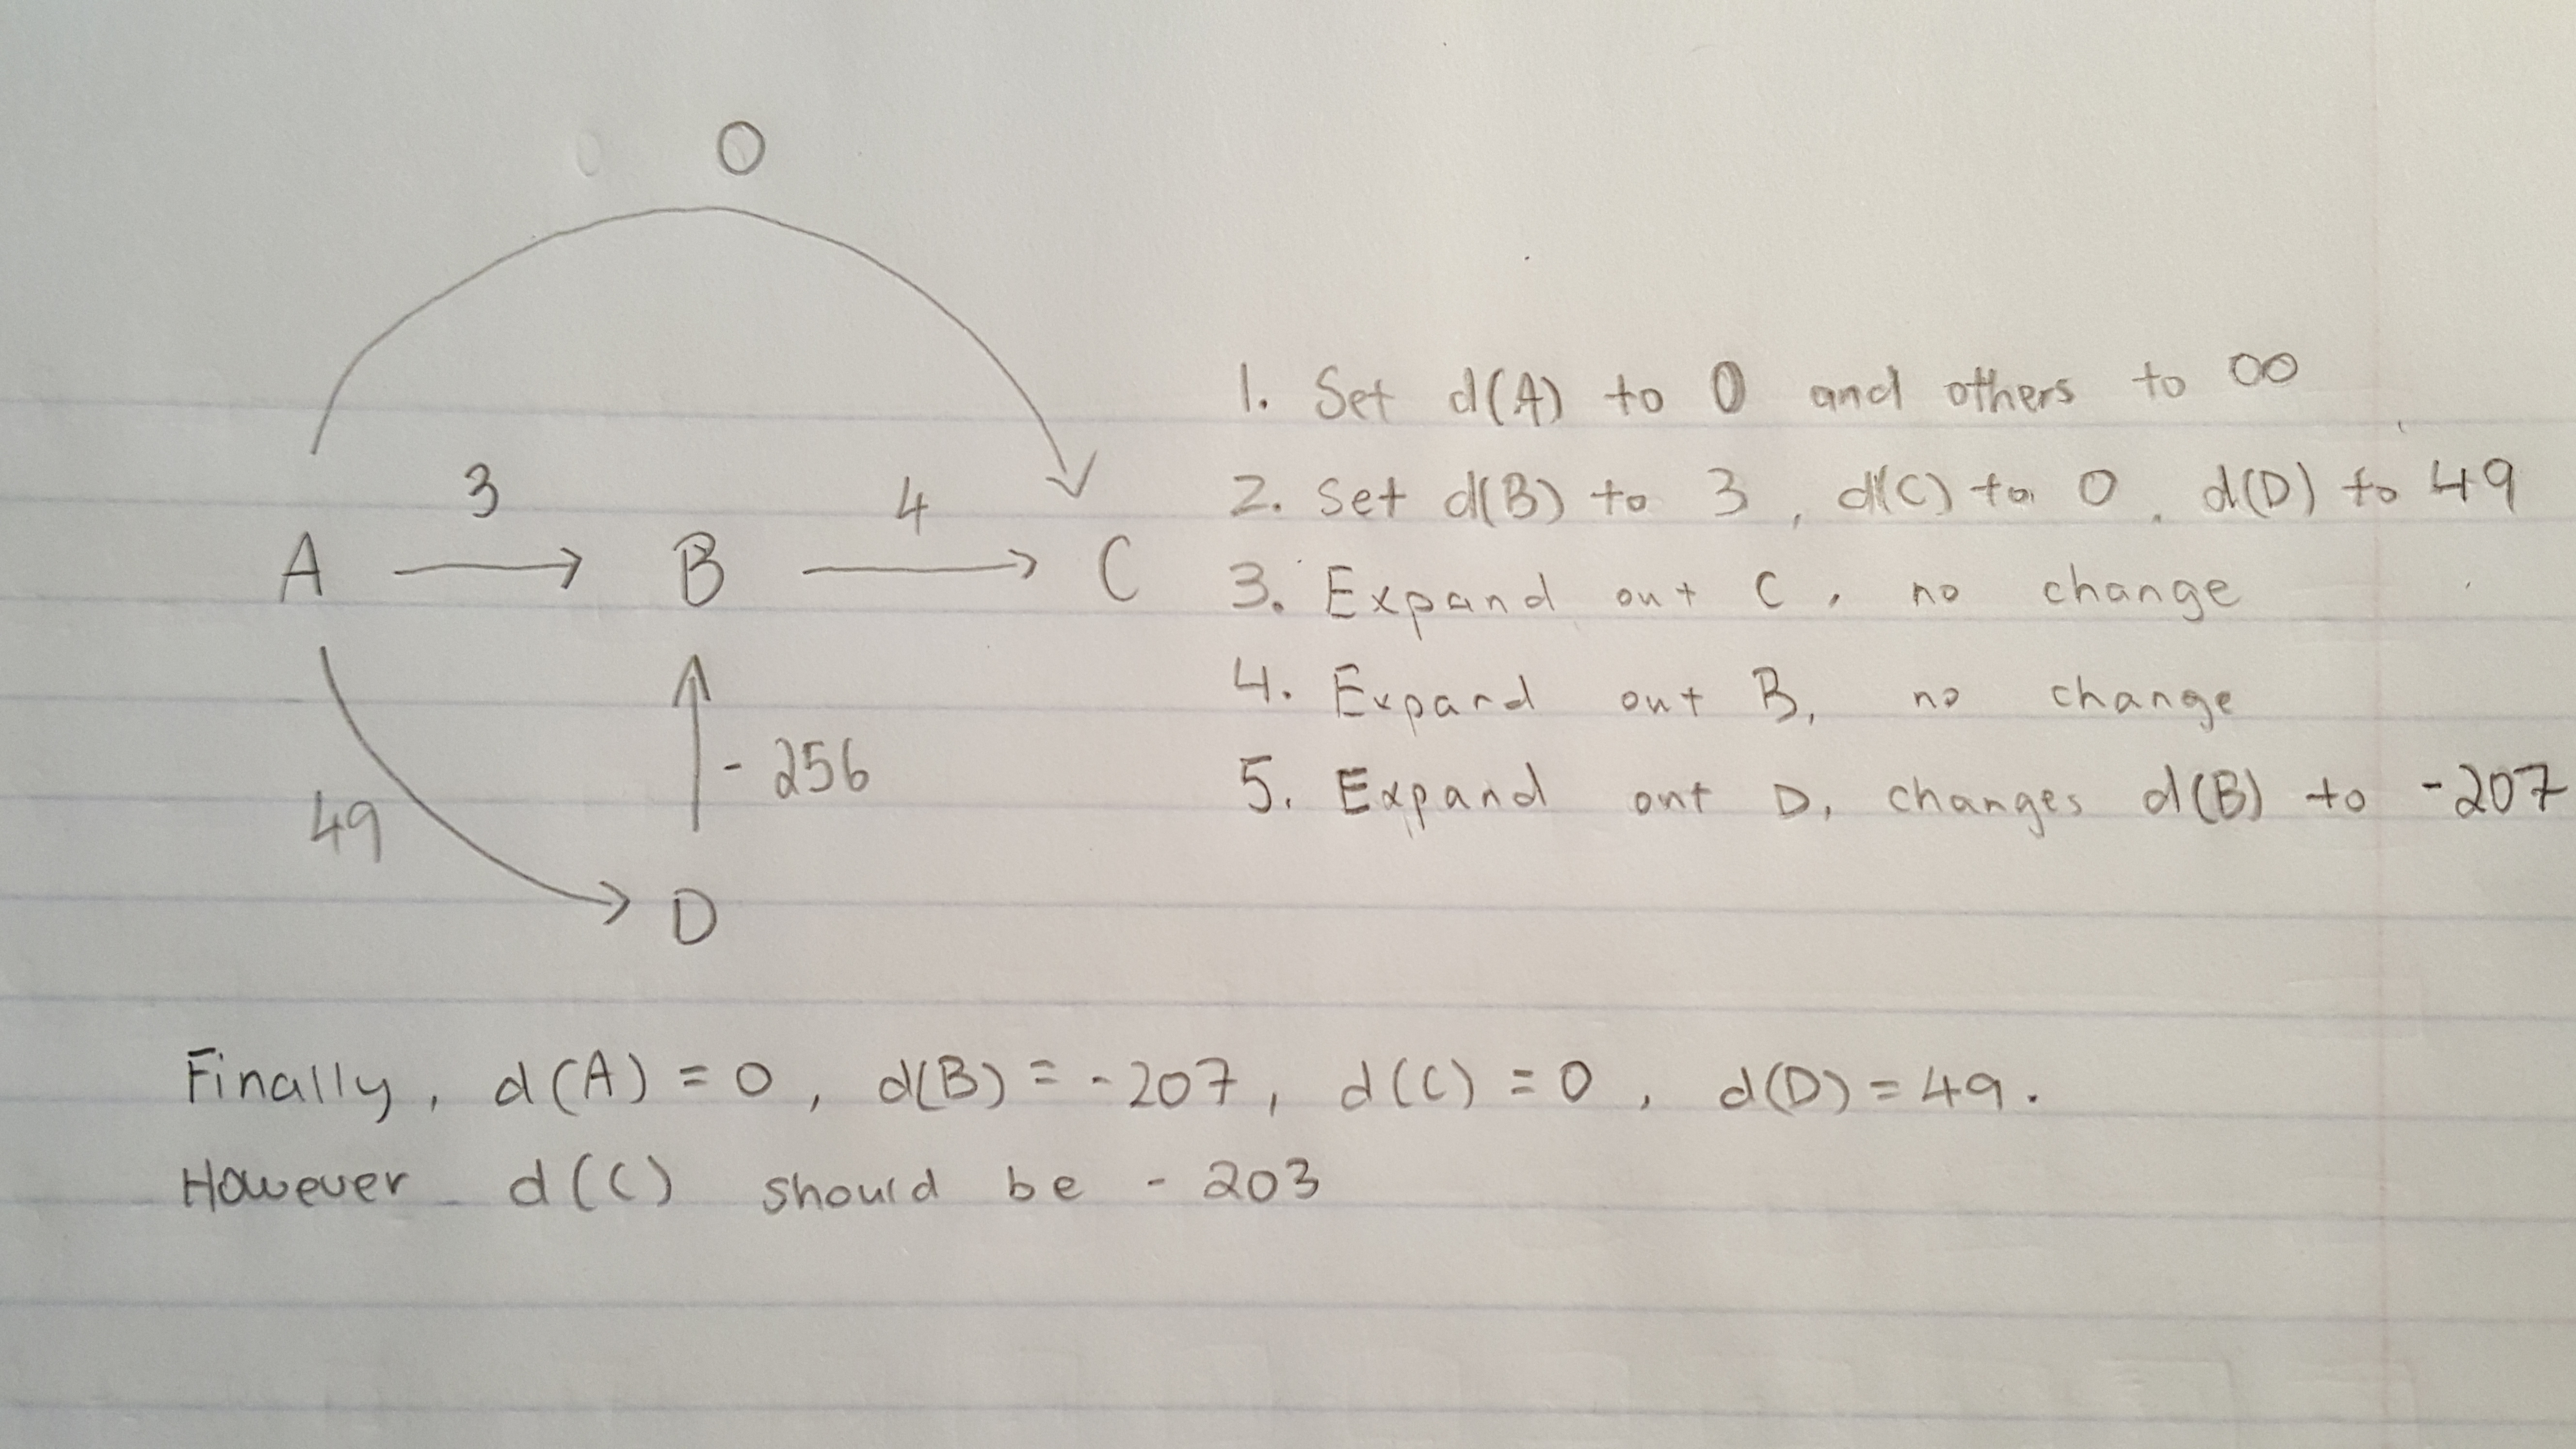 0
3
4
A
B
C
- 256
49
D
1. Set d(A) to 0 and others to ∞
2. Set d(B) to 3, d(C) to 0, d(D) to 49
3. Expand out C, no change
4. Expand out B, no change
5. Expand out D, changes d(B) to -207
Finally, d(A) = 0, d(B) = -207, d(C) = 0, d(D) = 49.
However d(C) should be - 203